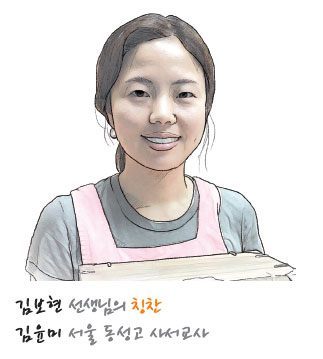 김보현 선생님의 칭찬
김윤미 서울 동성고 사서교사